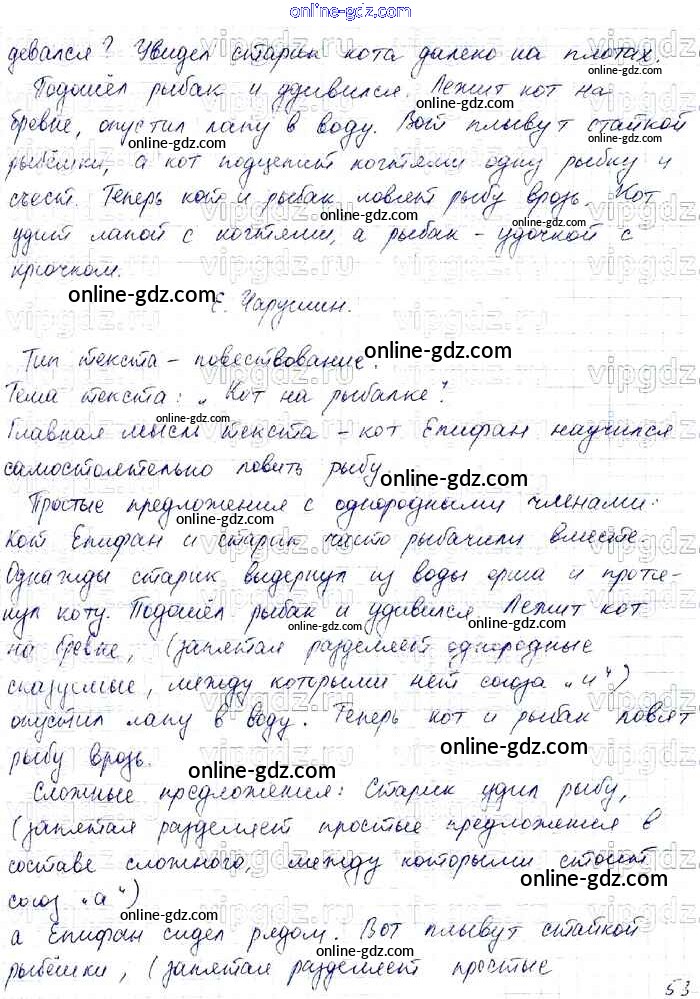 online-gdz.com
девался? Увидел старик кота далеко на плотах.
Подошёл рыбак и удивился. Лежит кот на
бревне, опустил лапу в воду. Вот плывут стайкой
рыбёшки, а кот подцепит когтями одну рыбку и
съест. Теперь кот и рыбак ловят рыбу врозь. Кот
удит лапой с когтями, а рыбак - удочкой с
крючком.
Е. Чарушин.
Тип текста - повествование.
Тема текста: „Кот на рыбалке".
Главная мысль текста - кот Епифан научился
самостоятельно ловить рыбу.
Простые предложения с однородными членами:
Кот Епифан и старик часто рыбачили вместе.
Однажды старик выдернул из воды ерша и протя-
нул коту. Подошёл рыбак и удивился. Лежит кот
на бревне, (запятая разделяет однородные
сказуемые, между которыми нет союза „и")
опустил лапу в воду. Теперь кот и рыбак ловят
рыбу врозь.
Сложные предложения: Старик удил рыбу,
(запятая разделяет простые предложения в
составе сложного, между которыми стоит
союз „а")
а Епифан сидел рядом. Вот плывут стайкой
рыбёшки, (запятая разделяет простые
53